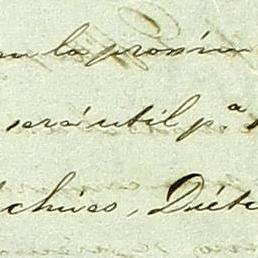 la proxim
será util p.ª
chivos, Diete